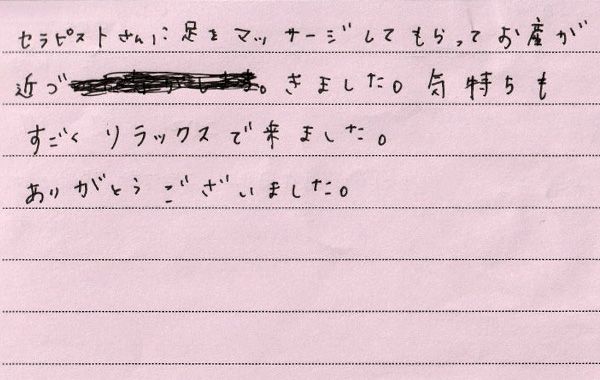 セラピストさんに足をマッサージしてもらってお産が
近づきました。気持ちも
すごくリラックスで来ました。
ありがとうございました。